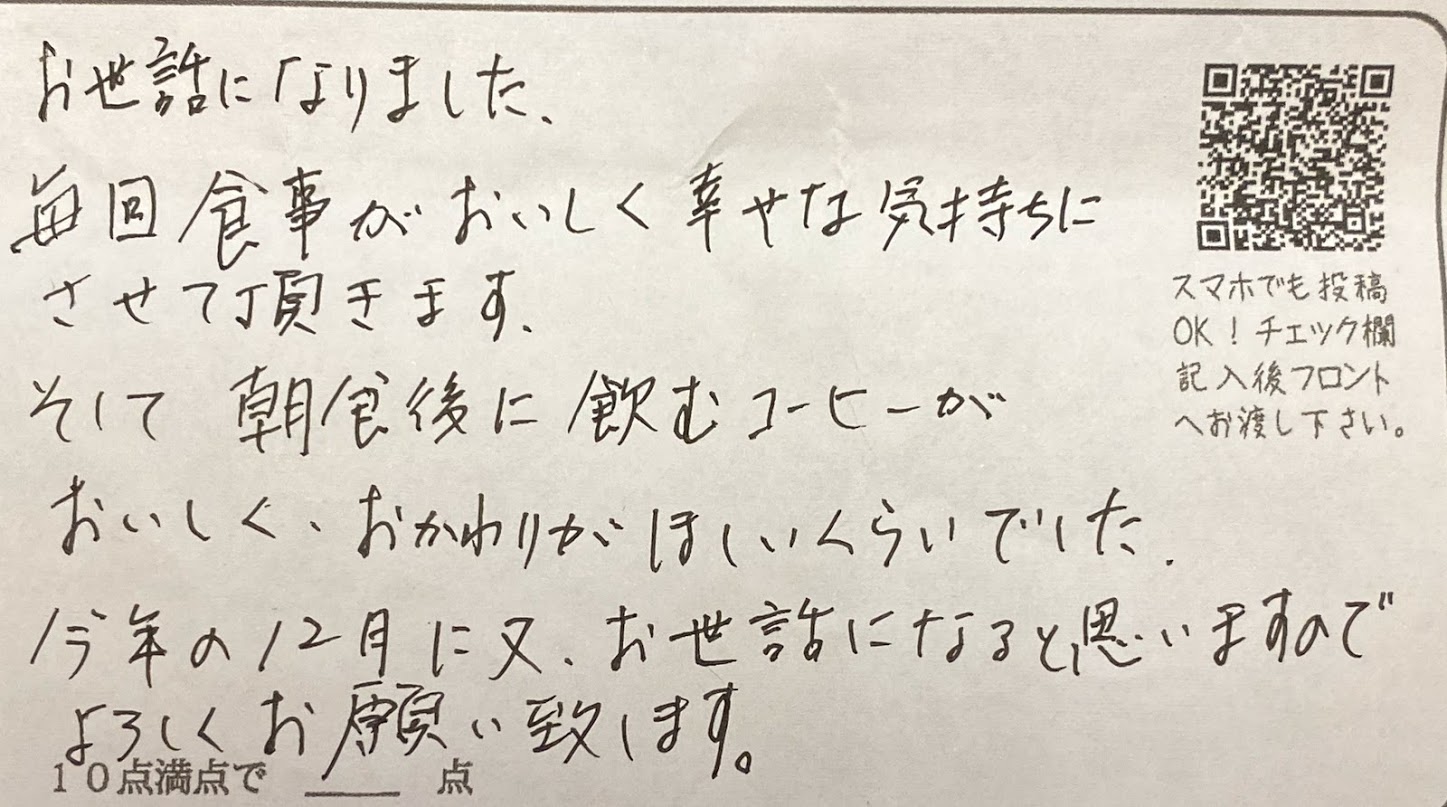 お世話になりました、
毎回食事がおいしく幸せな気持ちに
させて頂きます、
そして 朝食後に飲むコーヒーが
おいしく、おかわりがほしいくらいでした.
今年の12月に又、お世話になると思いますので
よろしくお願い致します。
10点満点で ____ 点
スマホでも投稿
OK！チェック欄
記入後フロント
へお渡し下さい。